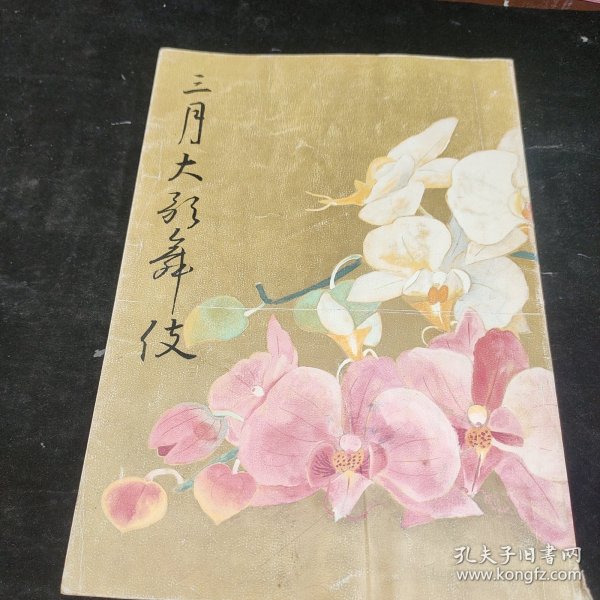 三月大歌舞伎
孔夫子旧書网
www.kongfz.com